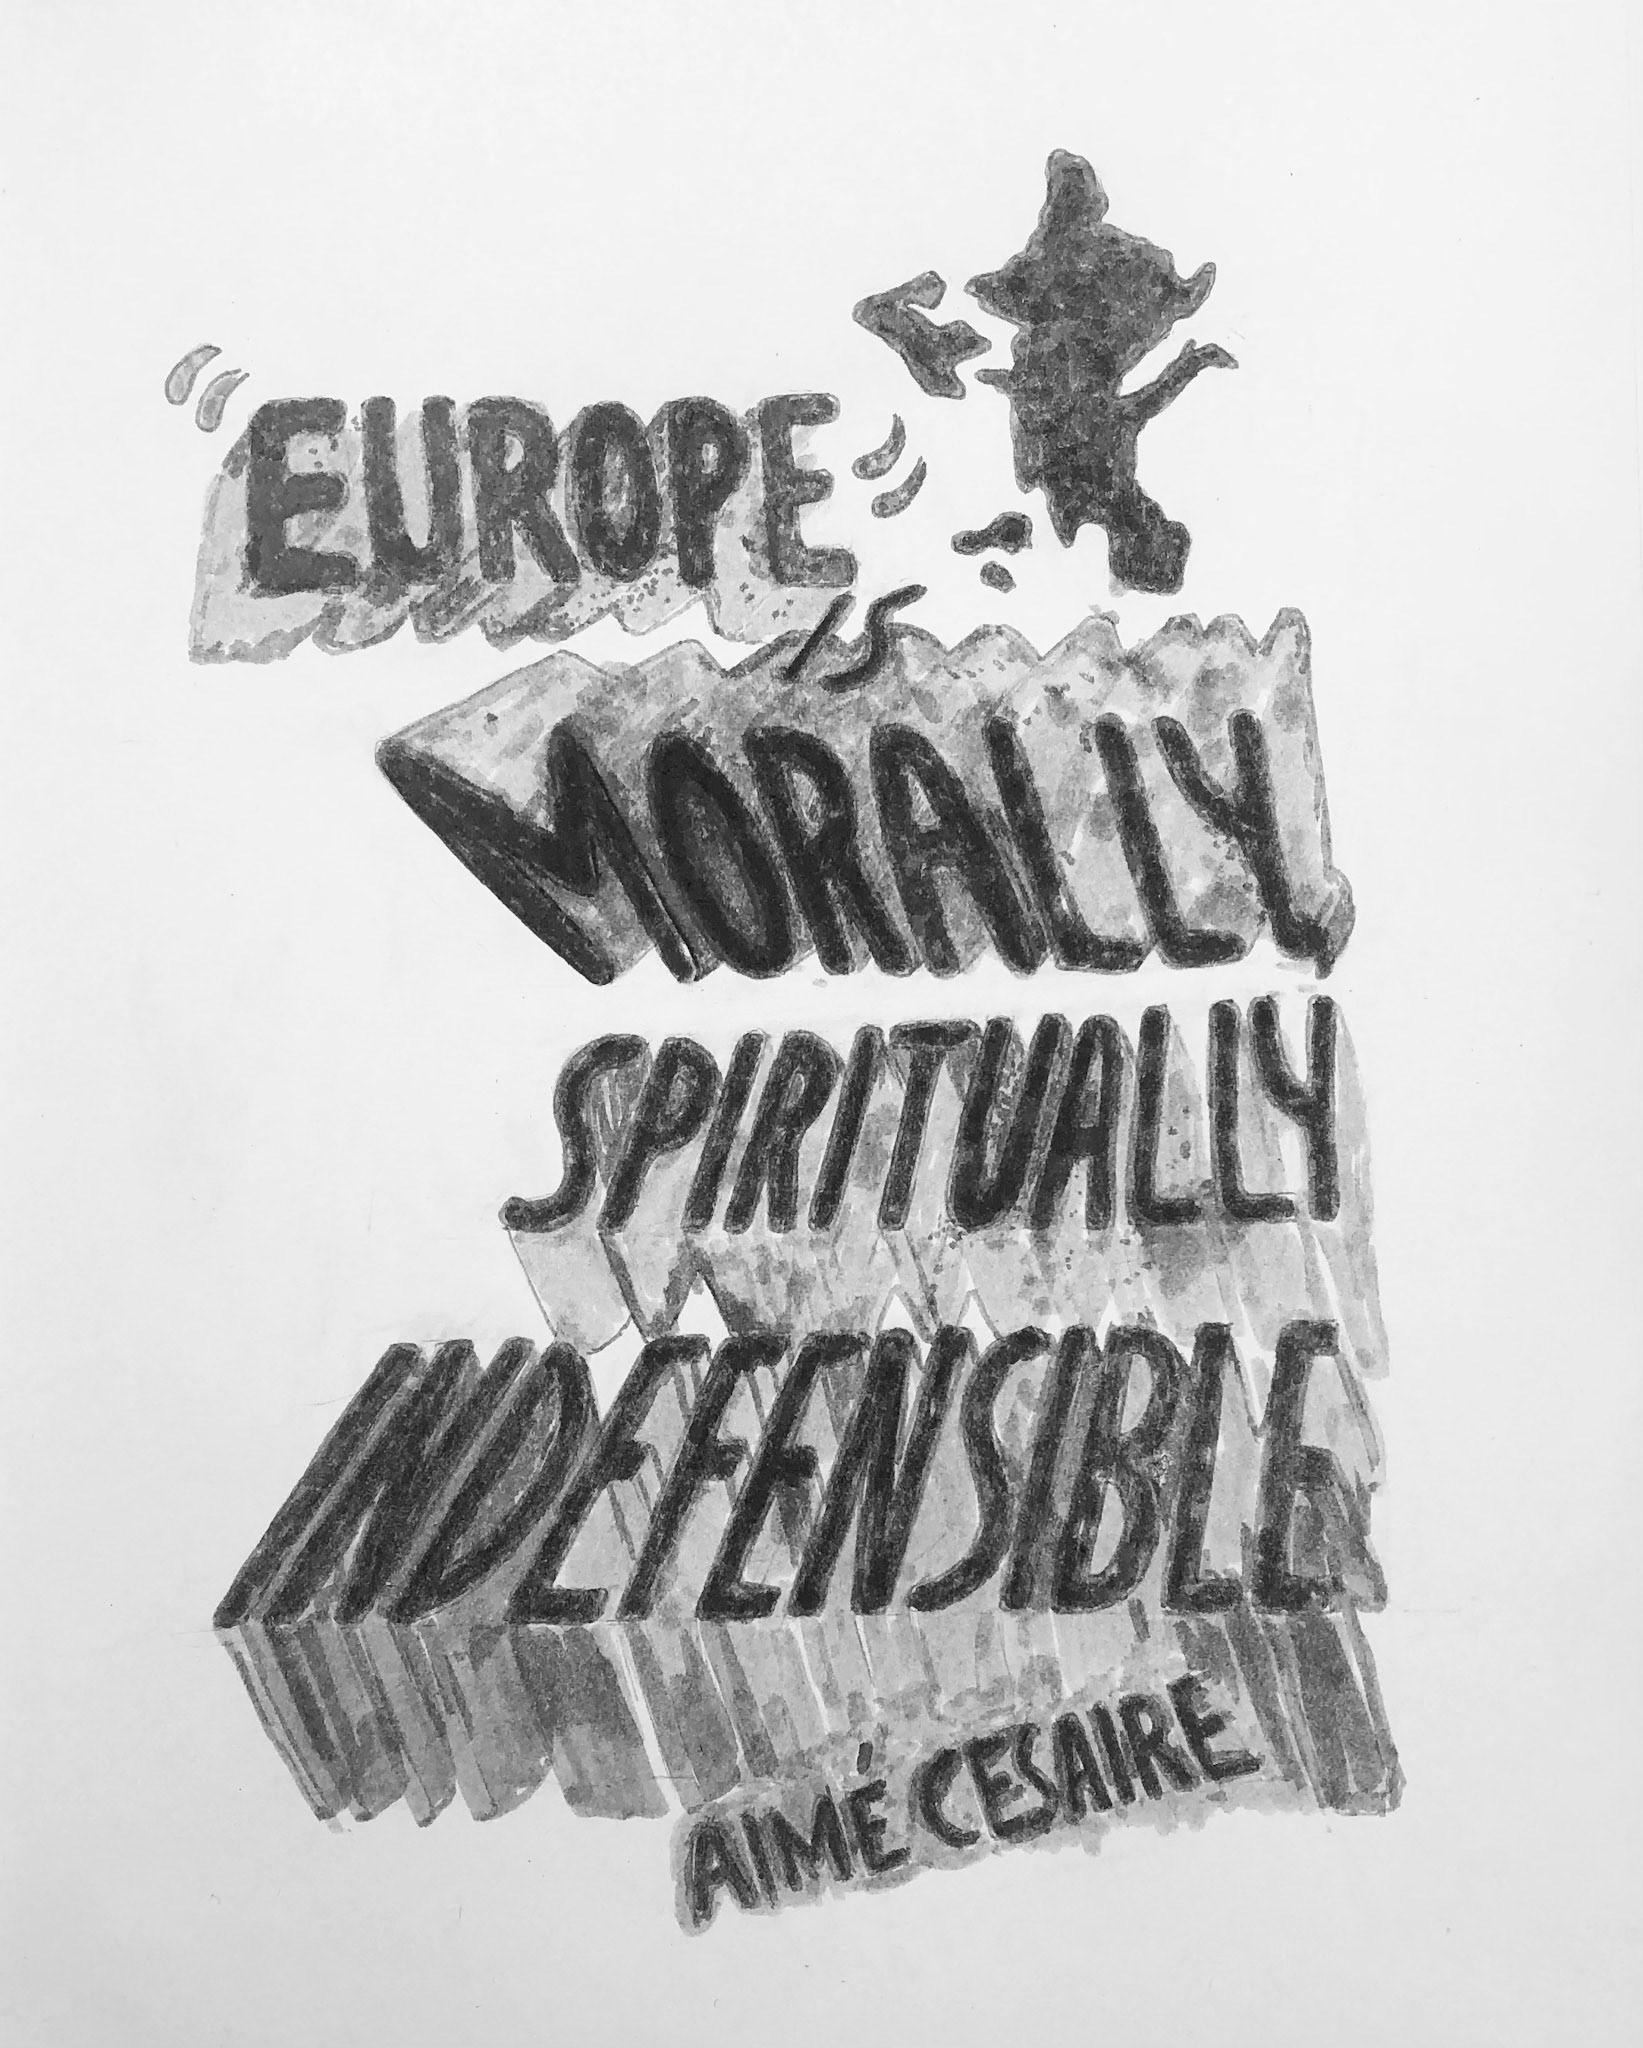 EUROPE
IS
MORALLY
SPIRITUALLY
INDEFENSIBLE
AIMÉ CESAIRE